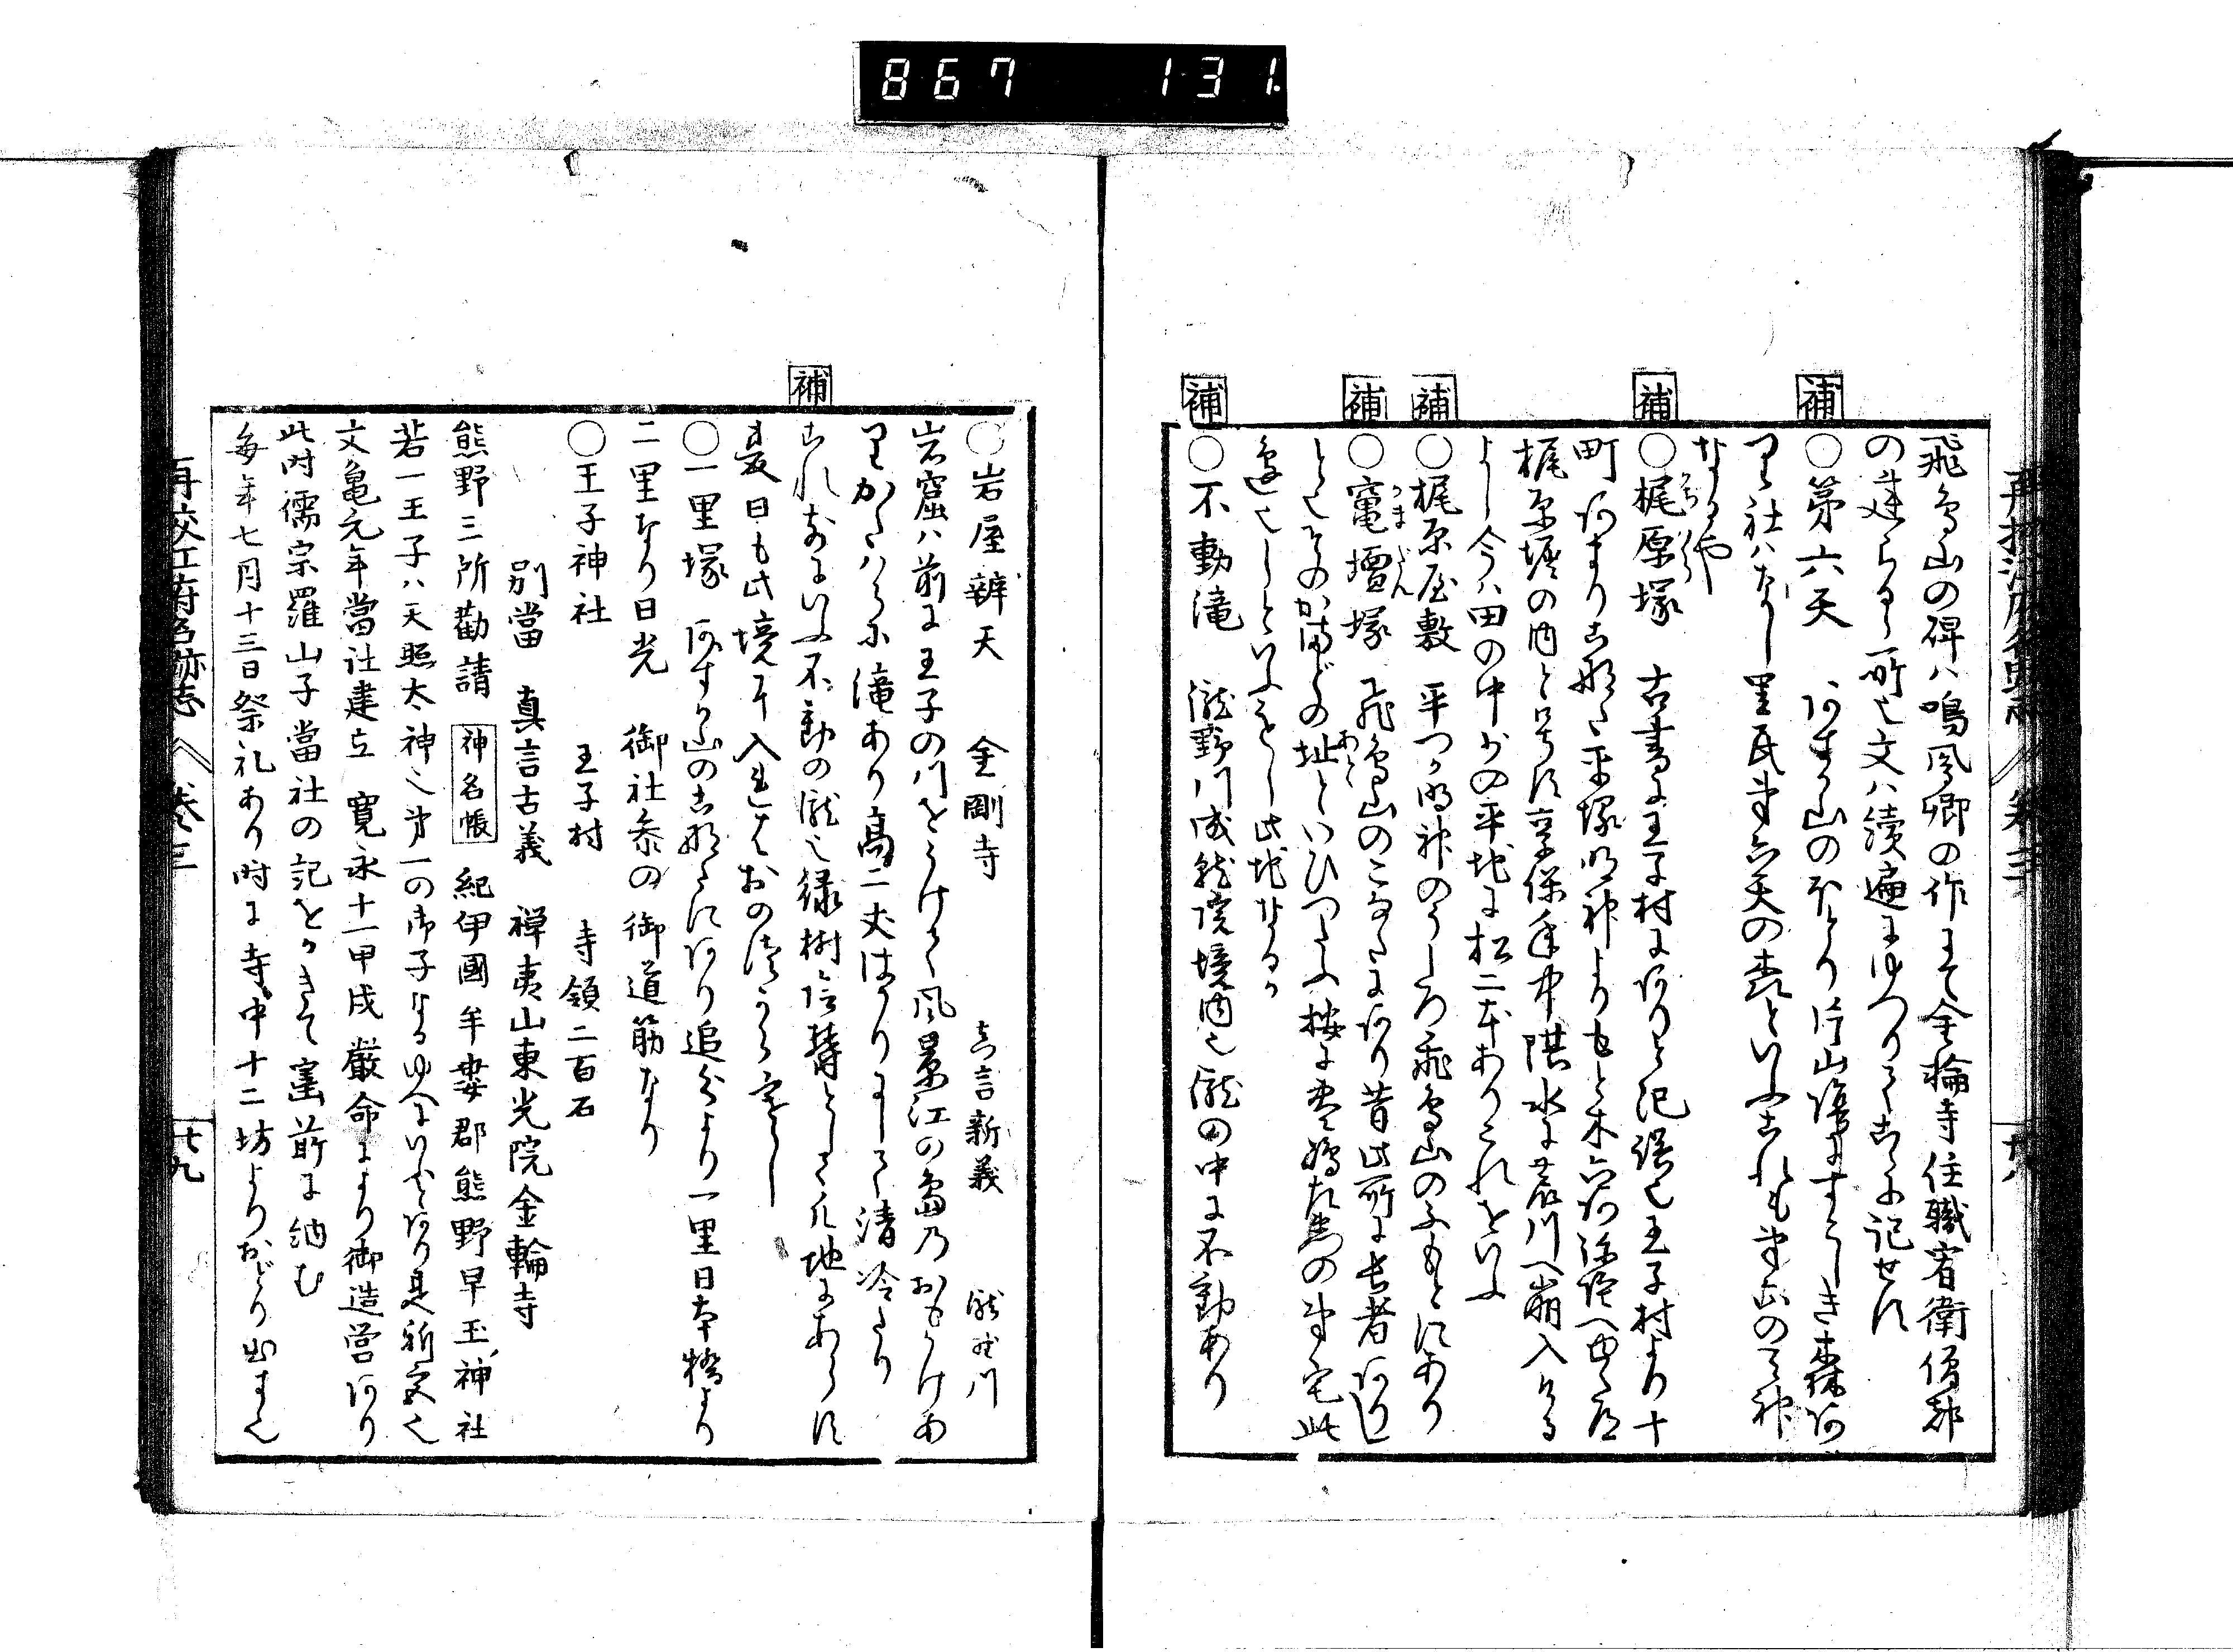 867 131.
再校江府名跡志 巻三
飛鳥山の碑ハ鳴凰卿の作にて金輪寺住職宥衛僧都
の建らるゝ所也文ハ続遍にゆつりてこゝに記せす
補
○第六天 あすか山のほとり片山陰にすこしき森あ
りて社ハなし里民第六天の森といふこれも第六の天神
なるや
補
○梶原塚 古書に王子村にありと記誤也王子村より十
町あまりこなた平塚明神よりもと木六阿弥陀へゆく道
梶原堀の内と号す享保年中洪水に荒川へ崩入ける
よし今ハ田の中少の平地に松二本ありこれをいふ
補
○梶原屋敷 平つか明神のうしろ飛鳥山のふもとにあり
補
○竈壇塚 飛鳥山のこなたにあり昔此所に長者あり
とてそのかまどの址といひつたふ按に豊嶋左衛門の第宅此
邊也しといふもし此地なるか
補
○不動滝 瀧野川成就院境内也瀧の中に不動あり
○岩屋辨天 金剛寺 真言新義 瀧野川
岩窟ハ前に王子の川をうけて風景江の島のおもかけあ
りかたハらに滝あり高二丈はかりにして清冷たり
補
これ前にいふ不動の瀧也緑樹陰欝として凡地にあらす
夏日も此境に入れはおのつからさむし
○一里塚 あすか山のこなたにあり追分より一里日本橋より
二里なり日光 御社参の御道筋なり
○王子神社 王子村 寺領二百石
別當 真言古義 禅夷山東光院金輪寺
熊野三所勸請 神名帳 紀伊國牟婁郡熊野早玉神社
若一王子ハ天照太神之第一の御子なるゆへにいふとあり是祈受也
文亀元年當社建立 寛永十一甲戌 嚴命により御造営あり
此時儒宗羅山子當社の記をかきて寳前に納む
毎年七月十三日祭礼あり時に寺中十二坊よりおどり出すて
再校江府名跡志 巻三 十九